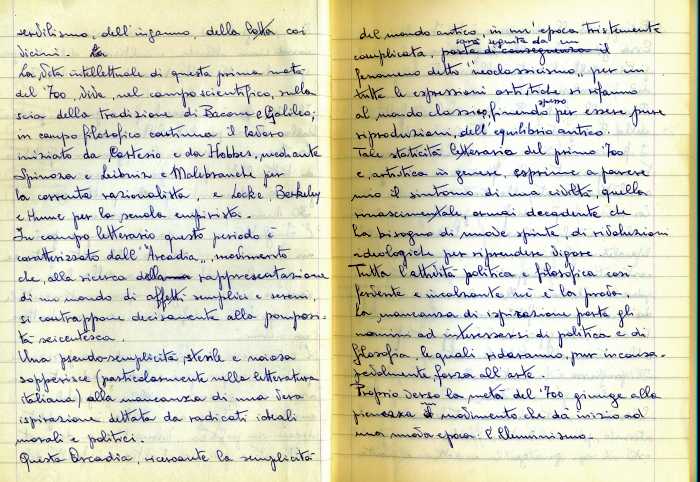 servilismo, dell'inganno, della lotta coi
vicini. La
La vita intellettuale di questa prima metà
del '700, vive, nel campo scientifico, sulla
scia della tradizione di Bacone e Galileo;
in campo filosofico continua il lavoro
iniziato da Cartesio e da Hobbes, mediante
Spinoza e Leibniz e Malebranche per
la corrente razionalista, e Locke, Berkeley
e Hume per la scuola empirista.
In campo letterario questo periodo è
caratterizzato dall'"Arcadia", movimento
che, alla ricerca della rappresentazione
di un mondo di affetti semplici e sereni,
si contrappone decisamente alla pomposi-
tà seicentesca.
Una pseudo-semplicità sterile e noiosa
sopperisce (particolarmente nella letteratura
italiana) alla mancanza di una vera
ispirazione dettata da radicati ideali
morali e politici.
Questa Arcadia, ricercante la semplicità
del mondo antico, in un'epoca tristemente
complicata, porta di conseguenza il
sarà seguita dal un
fenomeno detto "neoclassicismo", per cui
tutte le espressioni artistiche si rifanno
al mondo classico, finendo spesso per essere pure
riproduzioni, dell'equilibrio antico.
Tale staticità letteraria del primo '700
e, artistica in genere, esprime a parere
mio il sintomo di una civiltà, quella
rinascimentale, ormai decadente che
ha bisogno di nuove spinte, di rivoluzioni
ideologiche per riprendere vigore.
Tutta l'attività politica e filosofica così
fervente e incalzante ne è la prova,
la mancanza di ispirazione porta gli
uomini ad interessarsi di politica e di
filosofia, le quali ridaranno, pur inconsa-
pevolmente forza all'arte.
Proprio verso la metà del '700 giunge alla
pienezza un movimento che dà inizio ad
una nuova epoca: l'Illuminismo.